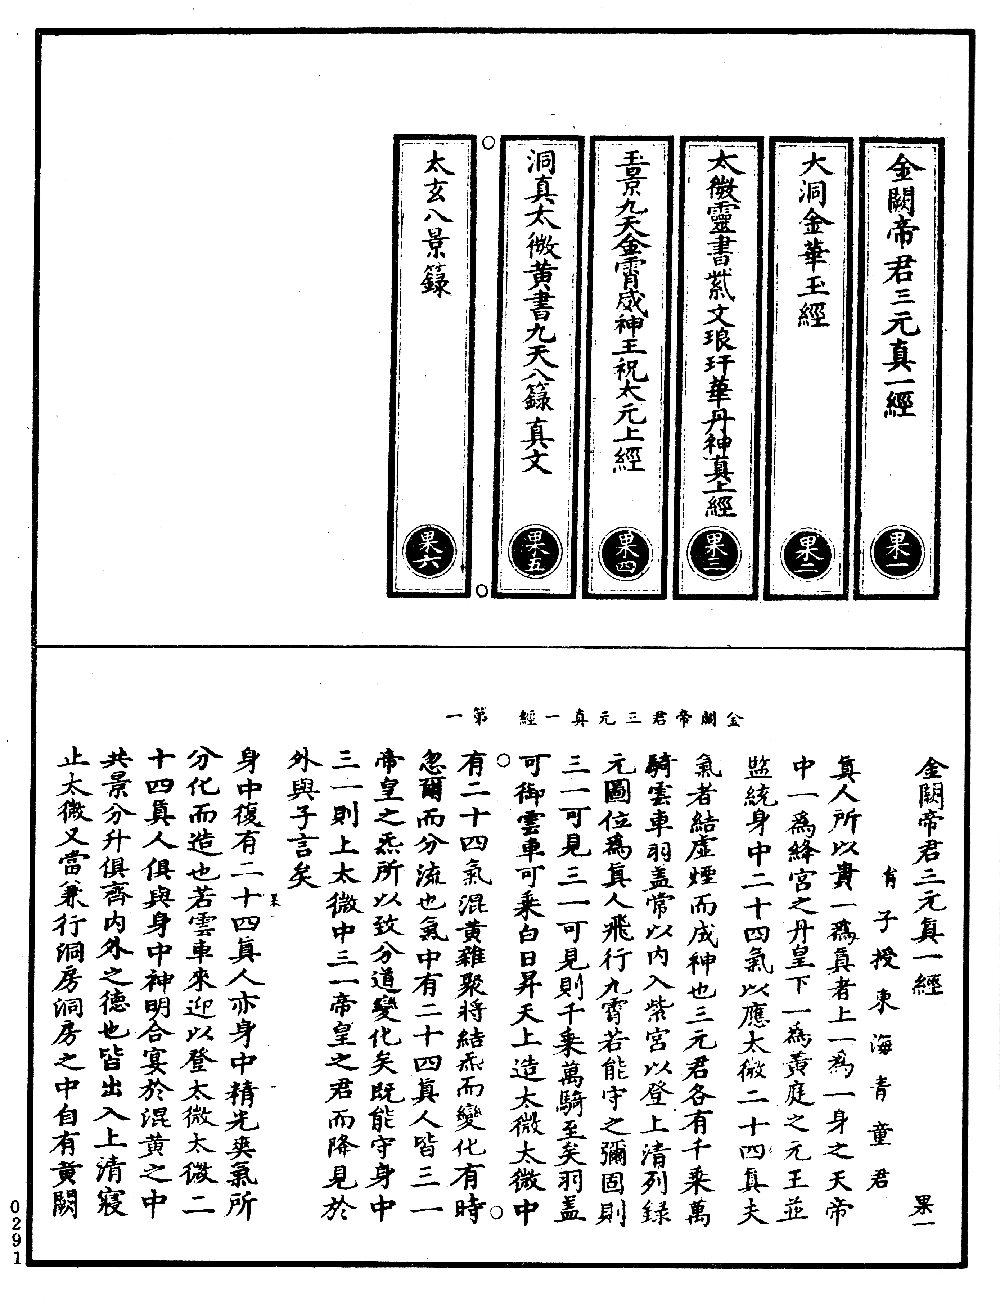 金闕帝君三元真一經
果一
大洞金華玉經
果二
太微靈書紫文琅玕華丹神真上經
果三
玉景九天金霄威神王祝太元上經
果四
洞真太微黃書九天八籙真文
果五
太玄八景籙
果六
金闕帝君三元真一經 第一
金闕帝君三元真一經 果一
涓子授東海青童君
真人所以貴一為真者上一為一身之天帝
中一為絳宮之丹皇下一為黃庭之元王並
監統身中二十四氣以應太微二十四真夫
氣者結虛煙而成神也三元君各有千乘萬
騎雲車羽蓋常以內入紫宮以登上清列錄
元圖位為真人飛行九霄若能守之彌固則
三一可見三一可見則千乘萬騎至矣羽蓋
可御雲車可乘白日昇天上造太微太微中
有二十四氣混黃雜聚將結炁而變化有時
忽爾而分流也氣中有二十四真人皆三一
帝皇之炁所以致分道變化矣既能守身中
三一則上太微中三一帝皇之君而降見於
外與子言矣
果一
身中復有二十四真人亦身中精光爽氣所
分化而造也若雲車來迎以登太微太微二
十四真人俱與身中神明合宴於混黃之中
共景分升俱齊內外之德也皆出入上清寢
止太微又當兼行洞房洞房之中自有黃闕
0291